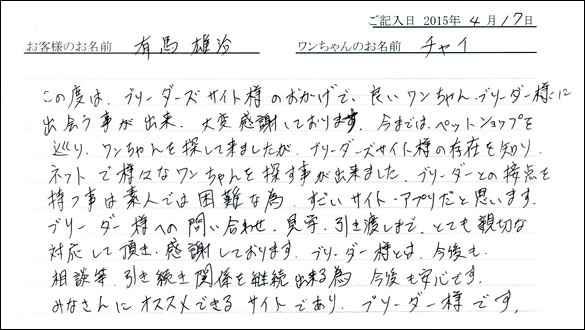 ご記入日 2015年 4月17日
お客様のお名前 有馬 雄治 ワンちゃんのお名前 チャイ
この度は、ブリーダーズサイト様のおかげで、良いワンちゃん、ブリーダー様に
出会う事が出来、大変感謝しております。今までは、ペットショップを
巡り、ワンちゃんを探して来ましたが、ブリーダーズサイト様の存在を知り、
ネットで様々なワンちゃんを探す事が出来ました。ブリーダーとの接点を
持つ事は素人では困難な為、すごいサイト・アプリだと思います。
ブリーダー様への問い合わせ、見学、引き渡しまで、とても親切な
対応して頂き、感謝しております。ブリーダー様とは、今後も
相談等、引き続き関係を継続出来る為、今後も安心です。
みなさんにオススメできるサイトであり、ブリーダー様です。